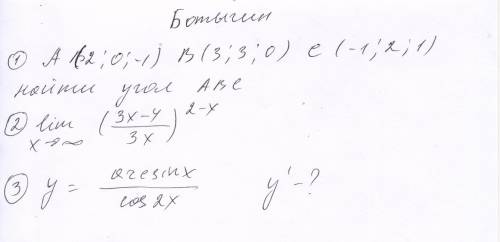 Ботыгин
① A (-2; 0; -1) B (3; 3; 0) C (-1; 2; 1)
найти угол ABC
② lim x→∞ ((3x-4)/(3x))^(2-x)
③ y = arcsin x / cos 2x   y' - ?